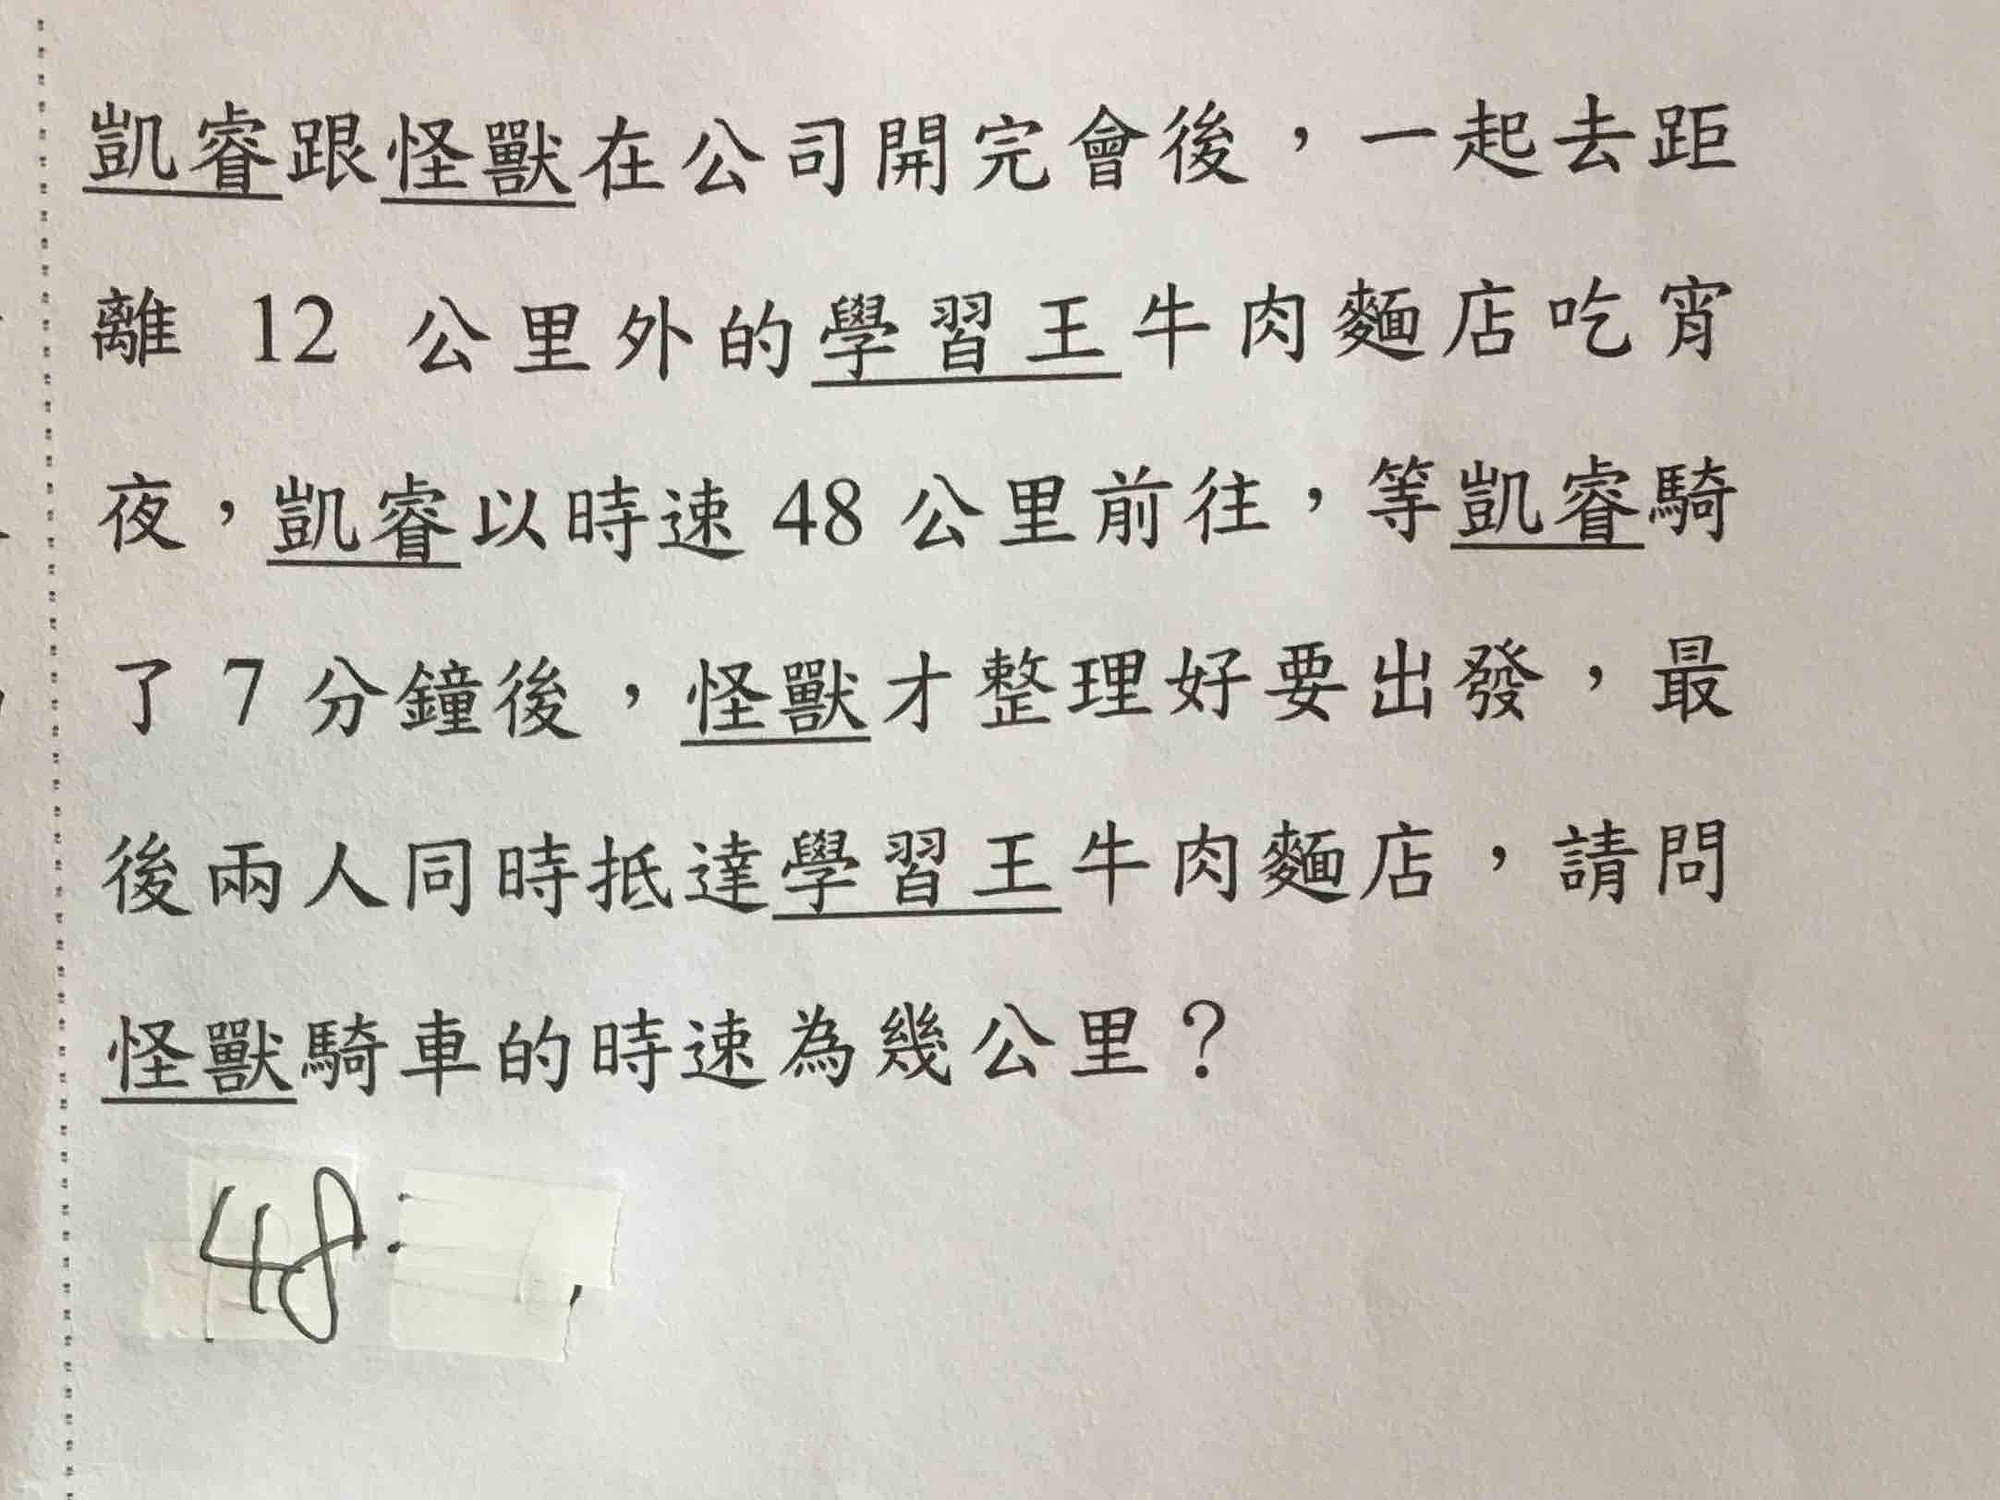 凱睿跟怪獸在公司開完會後，一起去距
離 12 公里外的學習王牛肉麵店吃宵
夜，凱睿以時速 48 公里前往，等凱睿騎
了 7 分鐘後，怪獸才整理好要出發，最
後兩人同時抵達學習王牛肉麵店，請問
怪獸騎車的時速為幾公里？
48